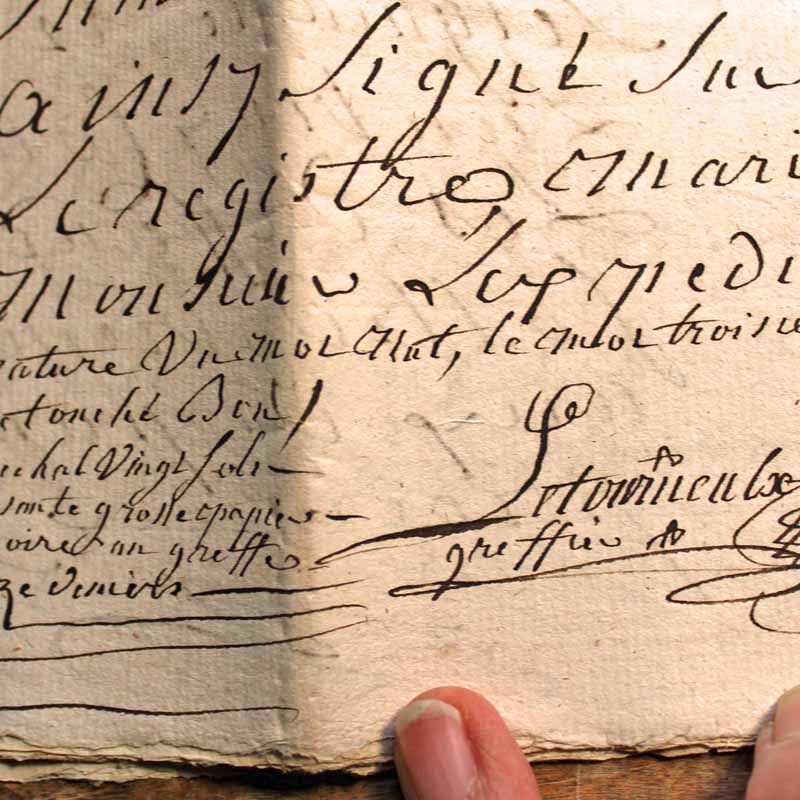 ainsy signé sur
Le registre, mari
Monsieur Les medi
nature Un mot Nul, le mot troisie
touché Bon
chal Vingt sols
grosse papier
oire au greffe
ze deniers
Letourneulx
greffier